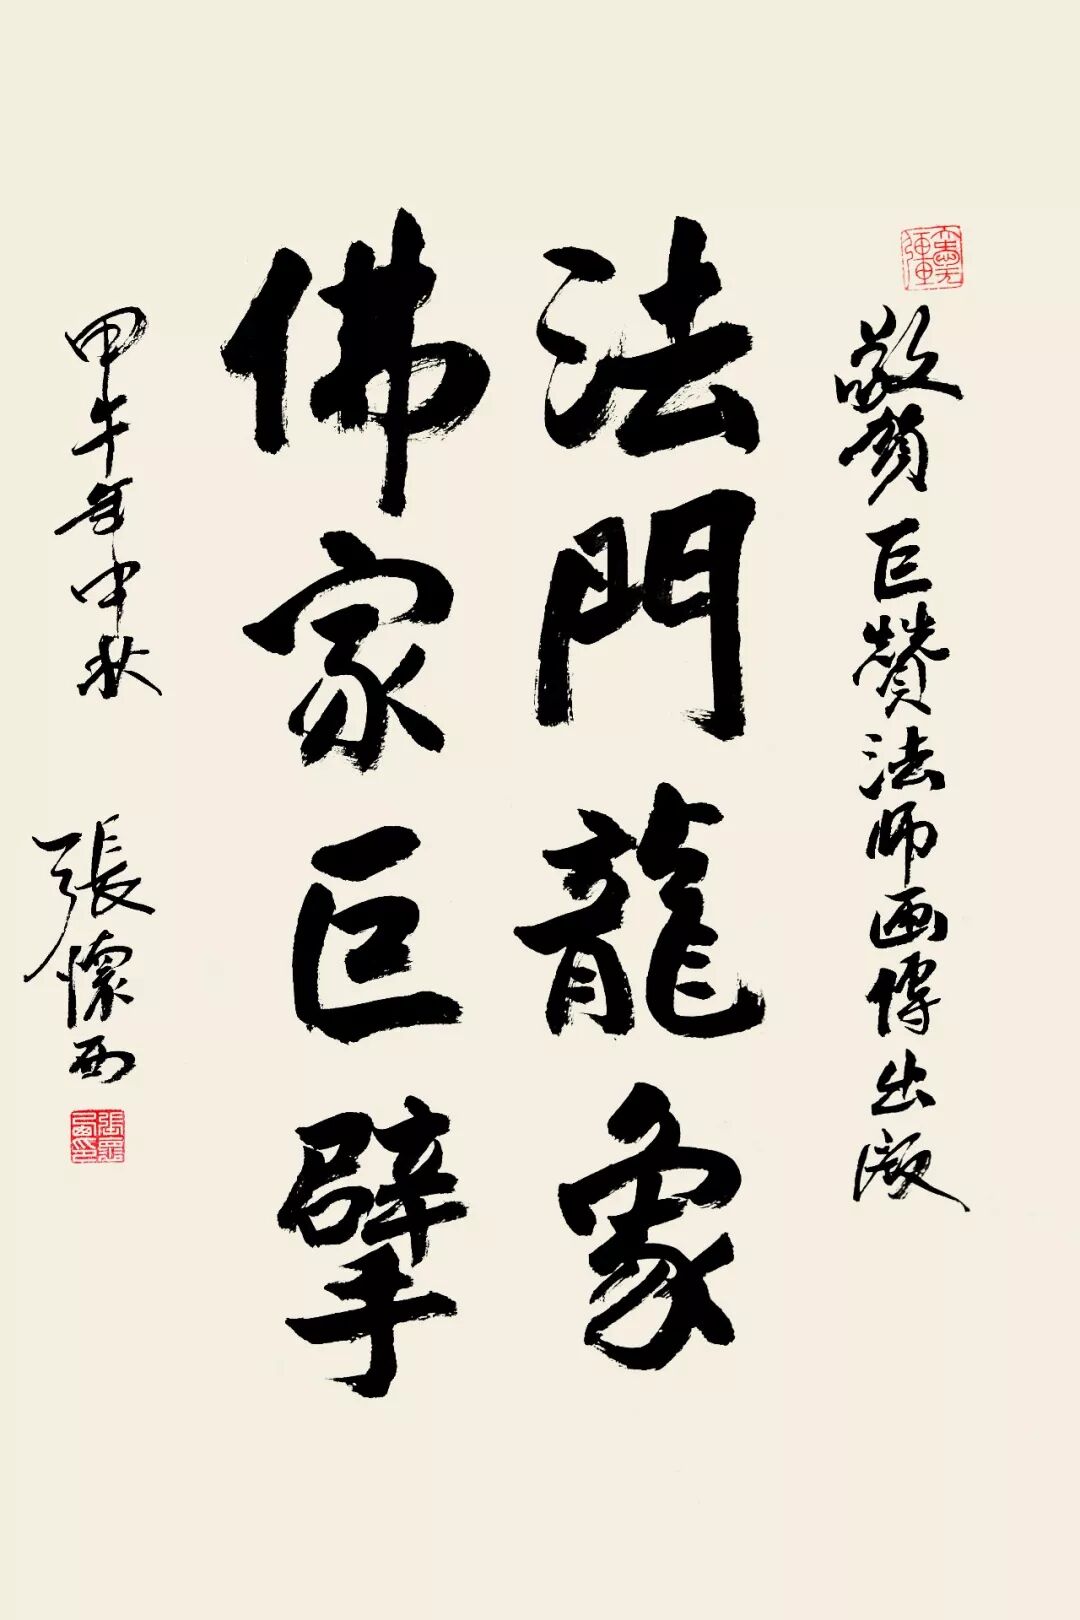 敬贺巨赞法师画传出版
法門龍象
佛家巨擘
甲午年中秋
張懷西